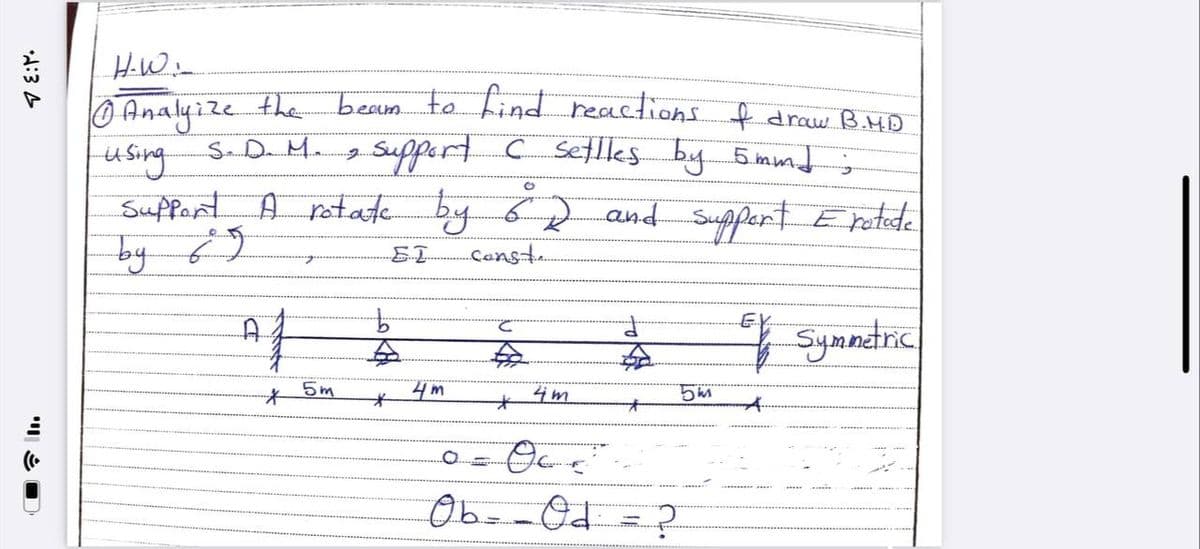 H.W:-
① Analyize the beam to find reactions & draw B.M.D
using S.D.M. , support C setlles by 5mm↓ ;
support A rotate by 6° ↻ and support E rotate
by 6° ↺ , EI const.
A b c d E Symmetric
5m 4m 4m 5m
0 = θc =
θb = -θd = ?